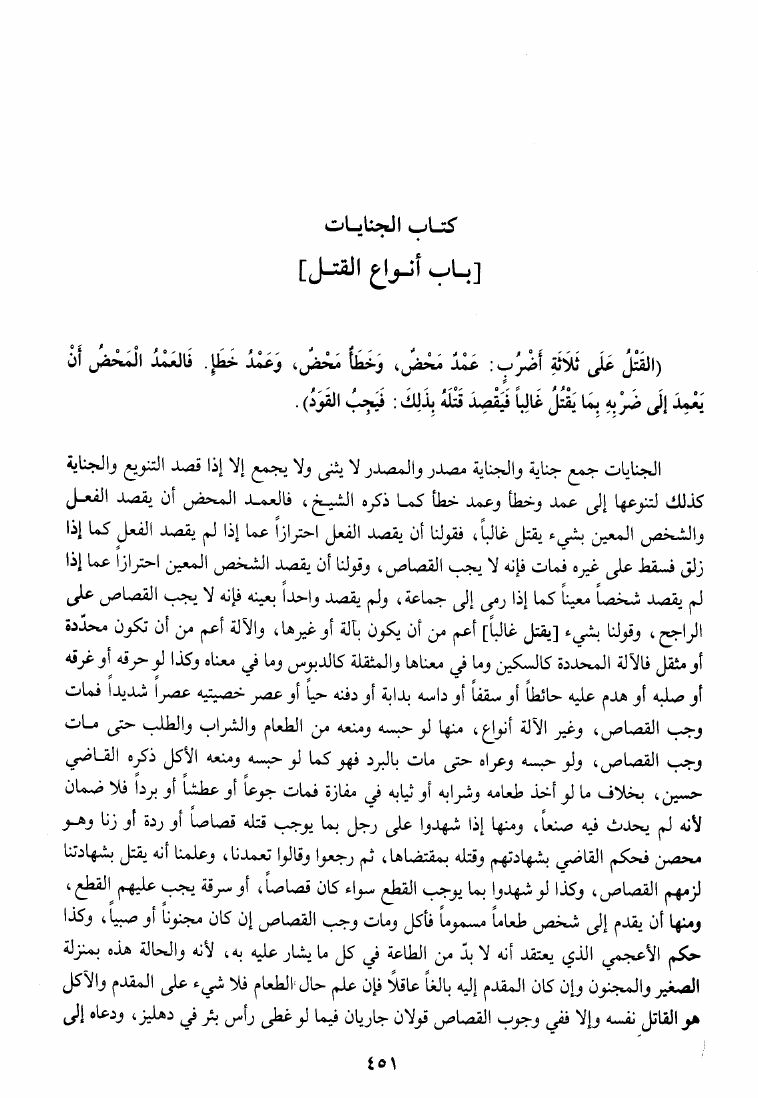 كتاب الجنايات
[باب أنواع القتل]
(القَتْلُ عَلَى ثَلَاثَةِ أَضْرُبٍ: عَمْدٌ مَحْضٌ، وَخَطَأٌ مَحْضٌ، وَعَمْدُ خَطَإٍ. فَالعَمْدُ الْمَحْضُ أَنْ
يَعْمِدَ إِلَى ضَرْبِهِ بِمَا يَقْتُلُ غَالِباً فَيَقْصِدَ قَتْلَهُ بِذَلِكَ: فَيَجِبُ القَوَدُ).
الجنايات جمع جناية والجناية مصدر والمصدر لا يثنى ولا يجمع إلا إذا قصد التنويع والجناية
كذلك لتنوعها إلى عمد وخطأ وعمد خطأ كما ذكره الشيخ، فالعمد المحض أن يقصد الفعل
والشخص المعين بشيء يقتل غالباً، فقولنا أن يقصد الفعل احترازاً عما إذا لم يقصد الفعل كما إذا
زلق فسقط على غيره فمات فإنه لا يجب القصاص، وقولنا أن يقصد الشخص المعين احترازاً عما إذا
لم يقصد شخصاً معيناً كما إذا رمى إلى جماعة، ولم يقصد واحداً بعينه فإنه لا يجب القصاص على
الراجح، وقولنا بشيء [يقتل غالباً] أعم من أن يكون بآلة أو غيرها، والآلة أعم من أن تكون محدّدة
أو مثقل فالآلة المحددة كالسكين وما في معناها والمثقلة كالدبوس وما في معناه وكذا لو حرقه أو غرقه
أو صلبه أو هدم عليه حائطاً أو سقفاً أو داسه بدابة أو دفنه حياً أو عصر خصيتيه عصراً شديداً فمات
وجب القصاص، وغير الآلة أنواع، منها لو حبسه ومنعه من الطعام والشراب والطلب حتى مات
وجب القصاص، ولو حبسه وعراه حتى مات بالبرد فهو كما لو حبسه ومنعه الأكل ذكره القاضي
حسين، بخلاف ما لو أخذ طعامه وشرابه أو ثيابه في مفازة فمات جوعاً أو عطشاً أو برداً فلا ضمان
لأنه لم يحدث فيه صنعاً، ومنها إذا شهدوا على رجل بما يوجب قتله قصاصاً أو ردة أو زنا وهو
محصن فحكم القاضي بشهادتهم وقتله بمقتضاها، ثم رجعوا وقالوا تعمدنا، وعلمنا أنه يقتل بشهادتنا
لزمهم القصاص، وكذا لو شهدوا بما يوجب القطع سواء كان قصاصاً، أو سرقة يجب عليهم القطع،
ومنها أن يقدم إلى شخص طعاماً مسموماً فأكل ومات وجب القصاص إن كان مجنوناً أو صبياً، وكذا
حكم الأعجمي الذي يعتقد أنه لا بدّ من الطاعة في كل ما يشار عليه به، لأنه والحالة هذه بمنزلة
الصغير والمجنون وإن كان المقدم إليه بالغاً عاقلاً فإن علم حال الطعام فلا شيء على المقدم والآكل
هو القاتل نفسه وإلا ففي وجوب القصاص قولان جاريان فيما لو غطى رأس بئر في دهليز، ودعاه إلى
٤٥١